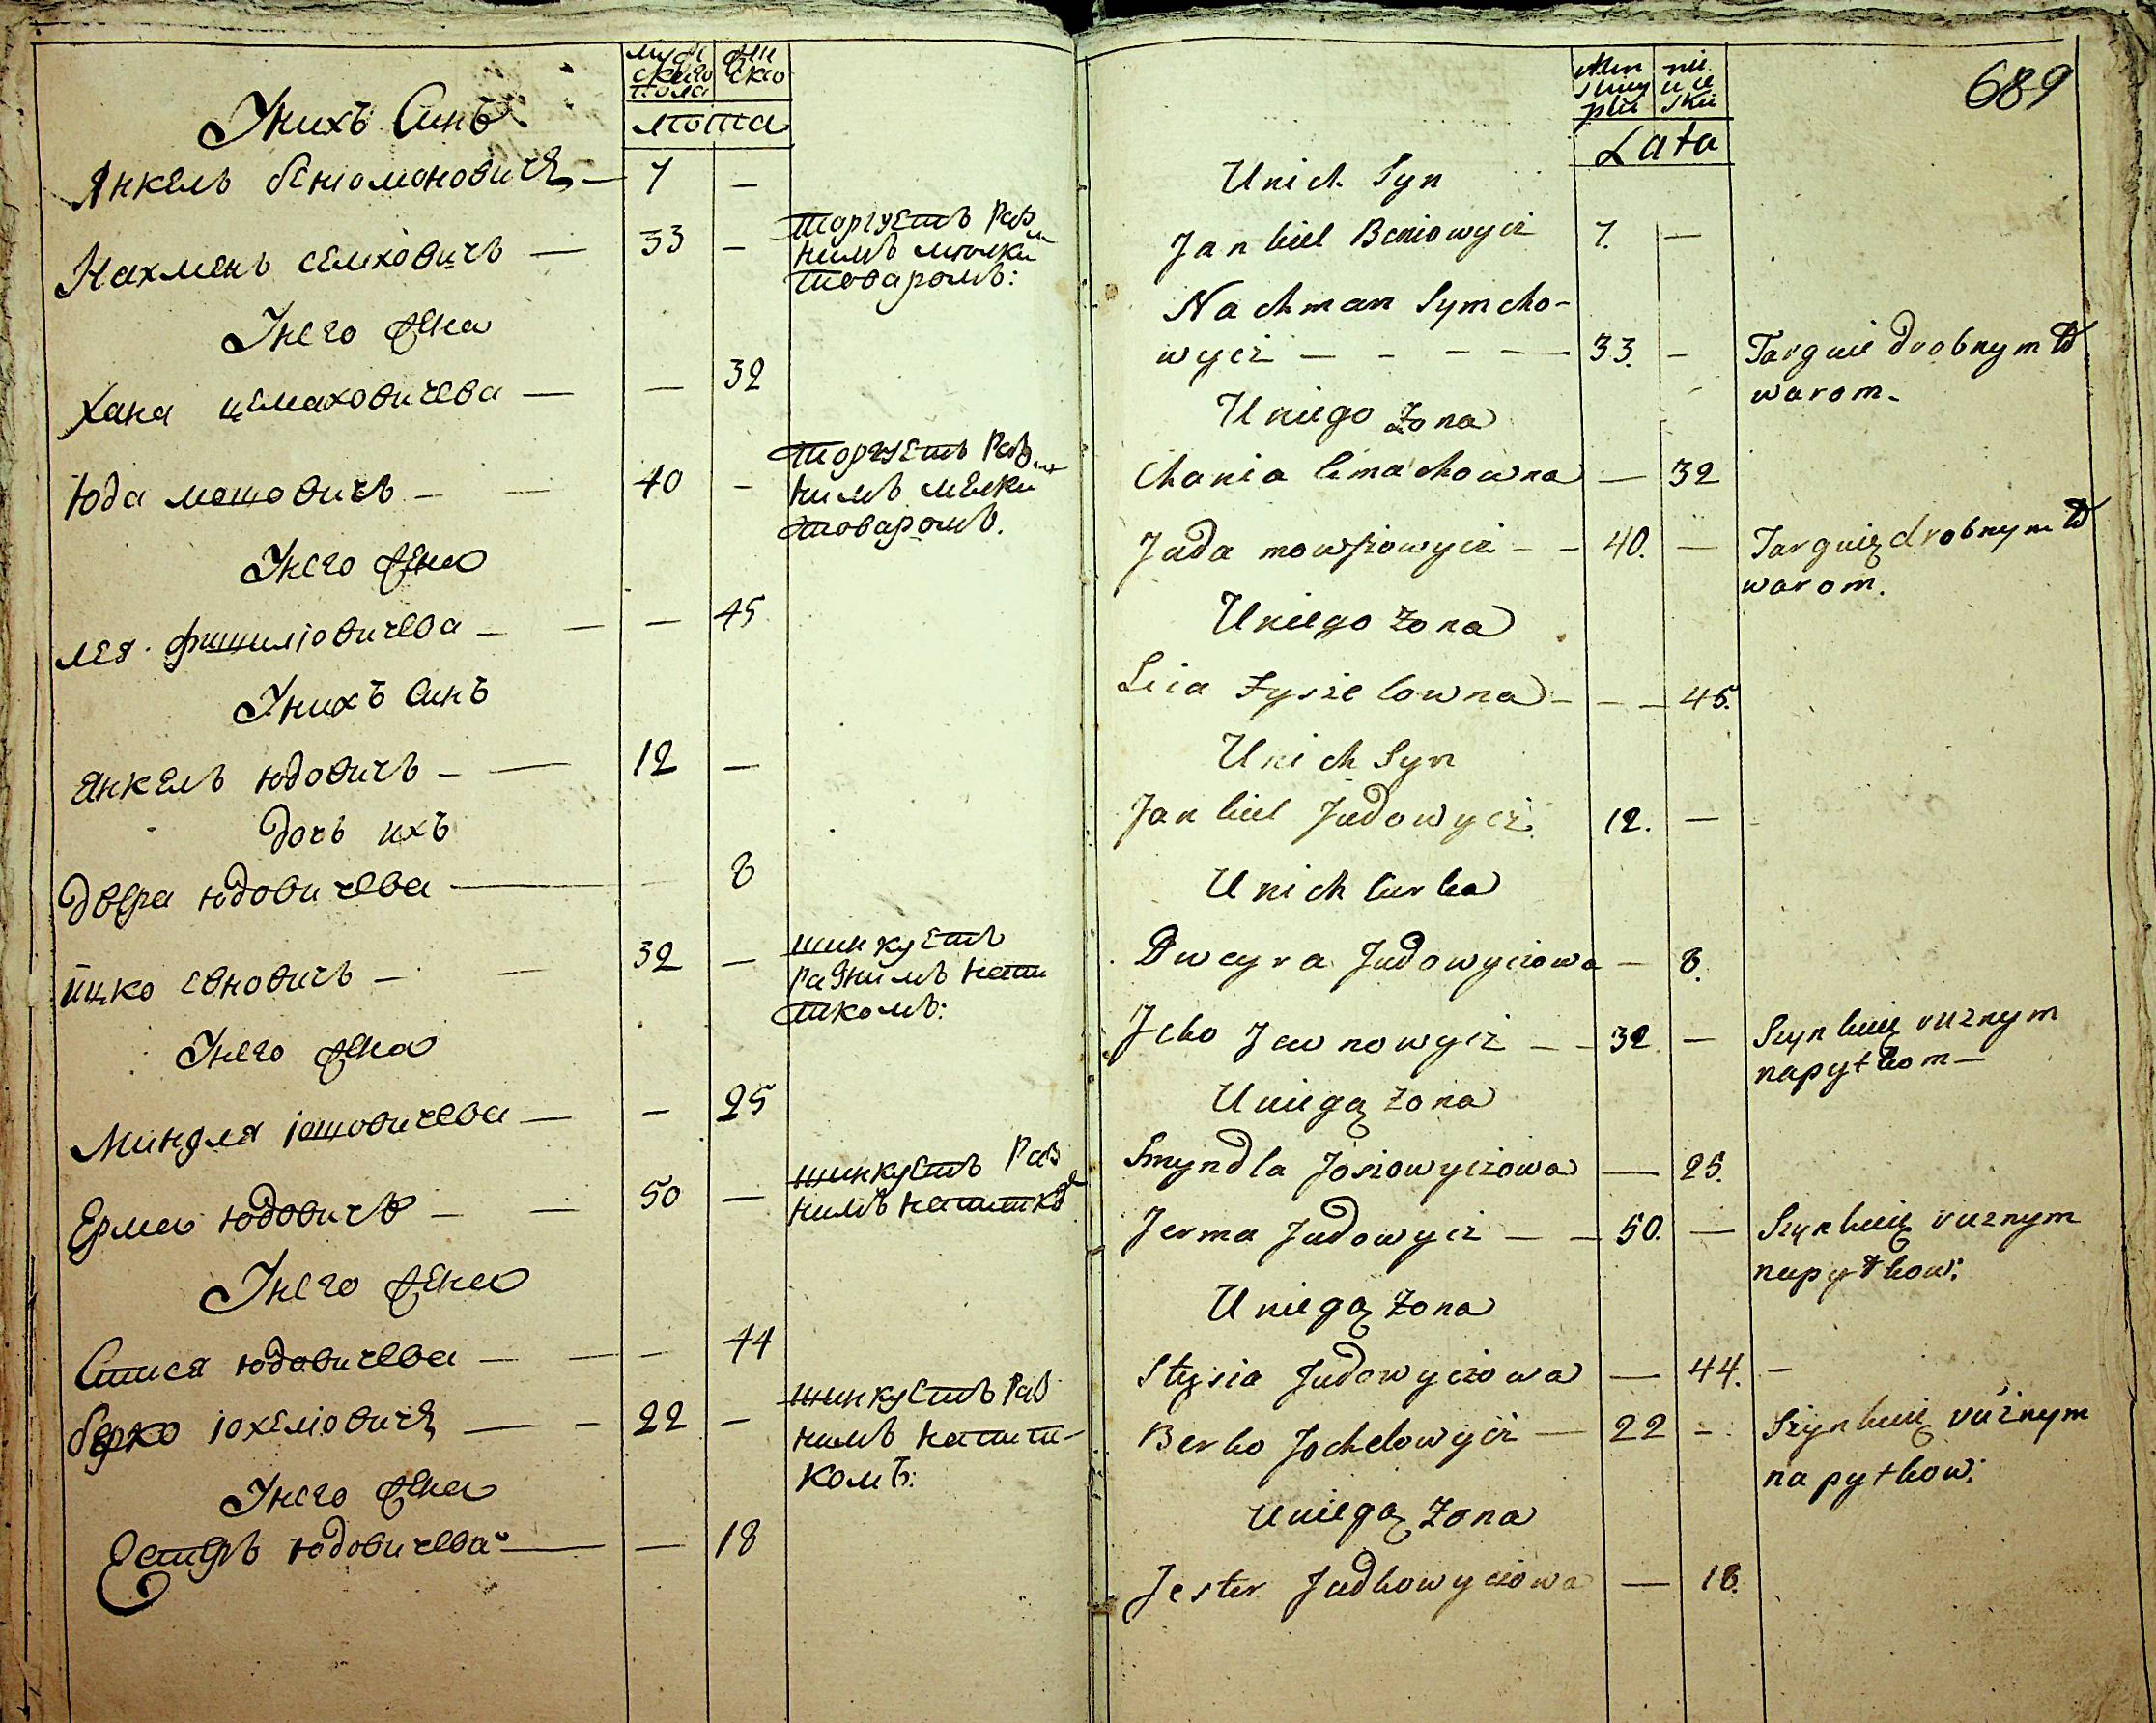 мужескаго пола
женско
Унихъ Синъ
лѣта
Янкель беніоминовичъ — 7 —
Нахмень семховичъ — 33 — торгуетъ раз
нимъ мѣлки
товаромъ:
Унего жена
Хана цемаховичева — — 32
Юда мошовичъ — — 40 — торгуетъ раз
нимъ мѣлки
товаромъ.
Унего жена
лея фишиліовичева — — — 45
Унихъ Синъ
Янкель юдовичъ — — 12 —
дочь ихъ
двера юдовичева — — 8
ицко евновичъ — — 32 — шинкуетъ
разнимъ напи
ткомъ:
Унего жена
Миндля іошовичева — — 25
Ерма юдовичъ — — 50 — шинкуетъ раз
нимъ напитко
Унего жена
Стися юдовичева — — — 44
берко іохеліовичъ — — 22 — шинкуетъ раз
нимъ напит-
комъ:
Унего жена
Естеръ юдовичева — — 18
689
Lata
Unich Syn
Jankiel Beniowycz 7. —
Nachman Symcho-
wycz — - - — 33. — Targuie drobnym to
warom.
Uniego Zona
Chania Cmachowna — 32
Juda mowszowycz - - 40. — Targuię drobnym to
warom.
Uniego Zona
Leia Fyszelowna - - - 45.
Unich Syn
Jankiel Judowycz 12. —
Unich Curka
Dweyra Judowyczowa — 8.
Jcko Jewnowycz — - 32. — Szynkuię ruznym
napytkom —
Uniegą Zona
Smyndla Josiowyczowa — 25.
Jerma Judowycz — — 50. — Szynkuię ruznym
napytkow:
Uniegą Zona
Stysia Judowyczowa — 44. —
Berko Jochelowycz — 22 - Szynkuię rużnym
napytkow:
Uniegą Zona
Jester Judkowyczowa — 18.